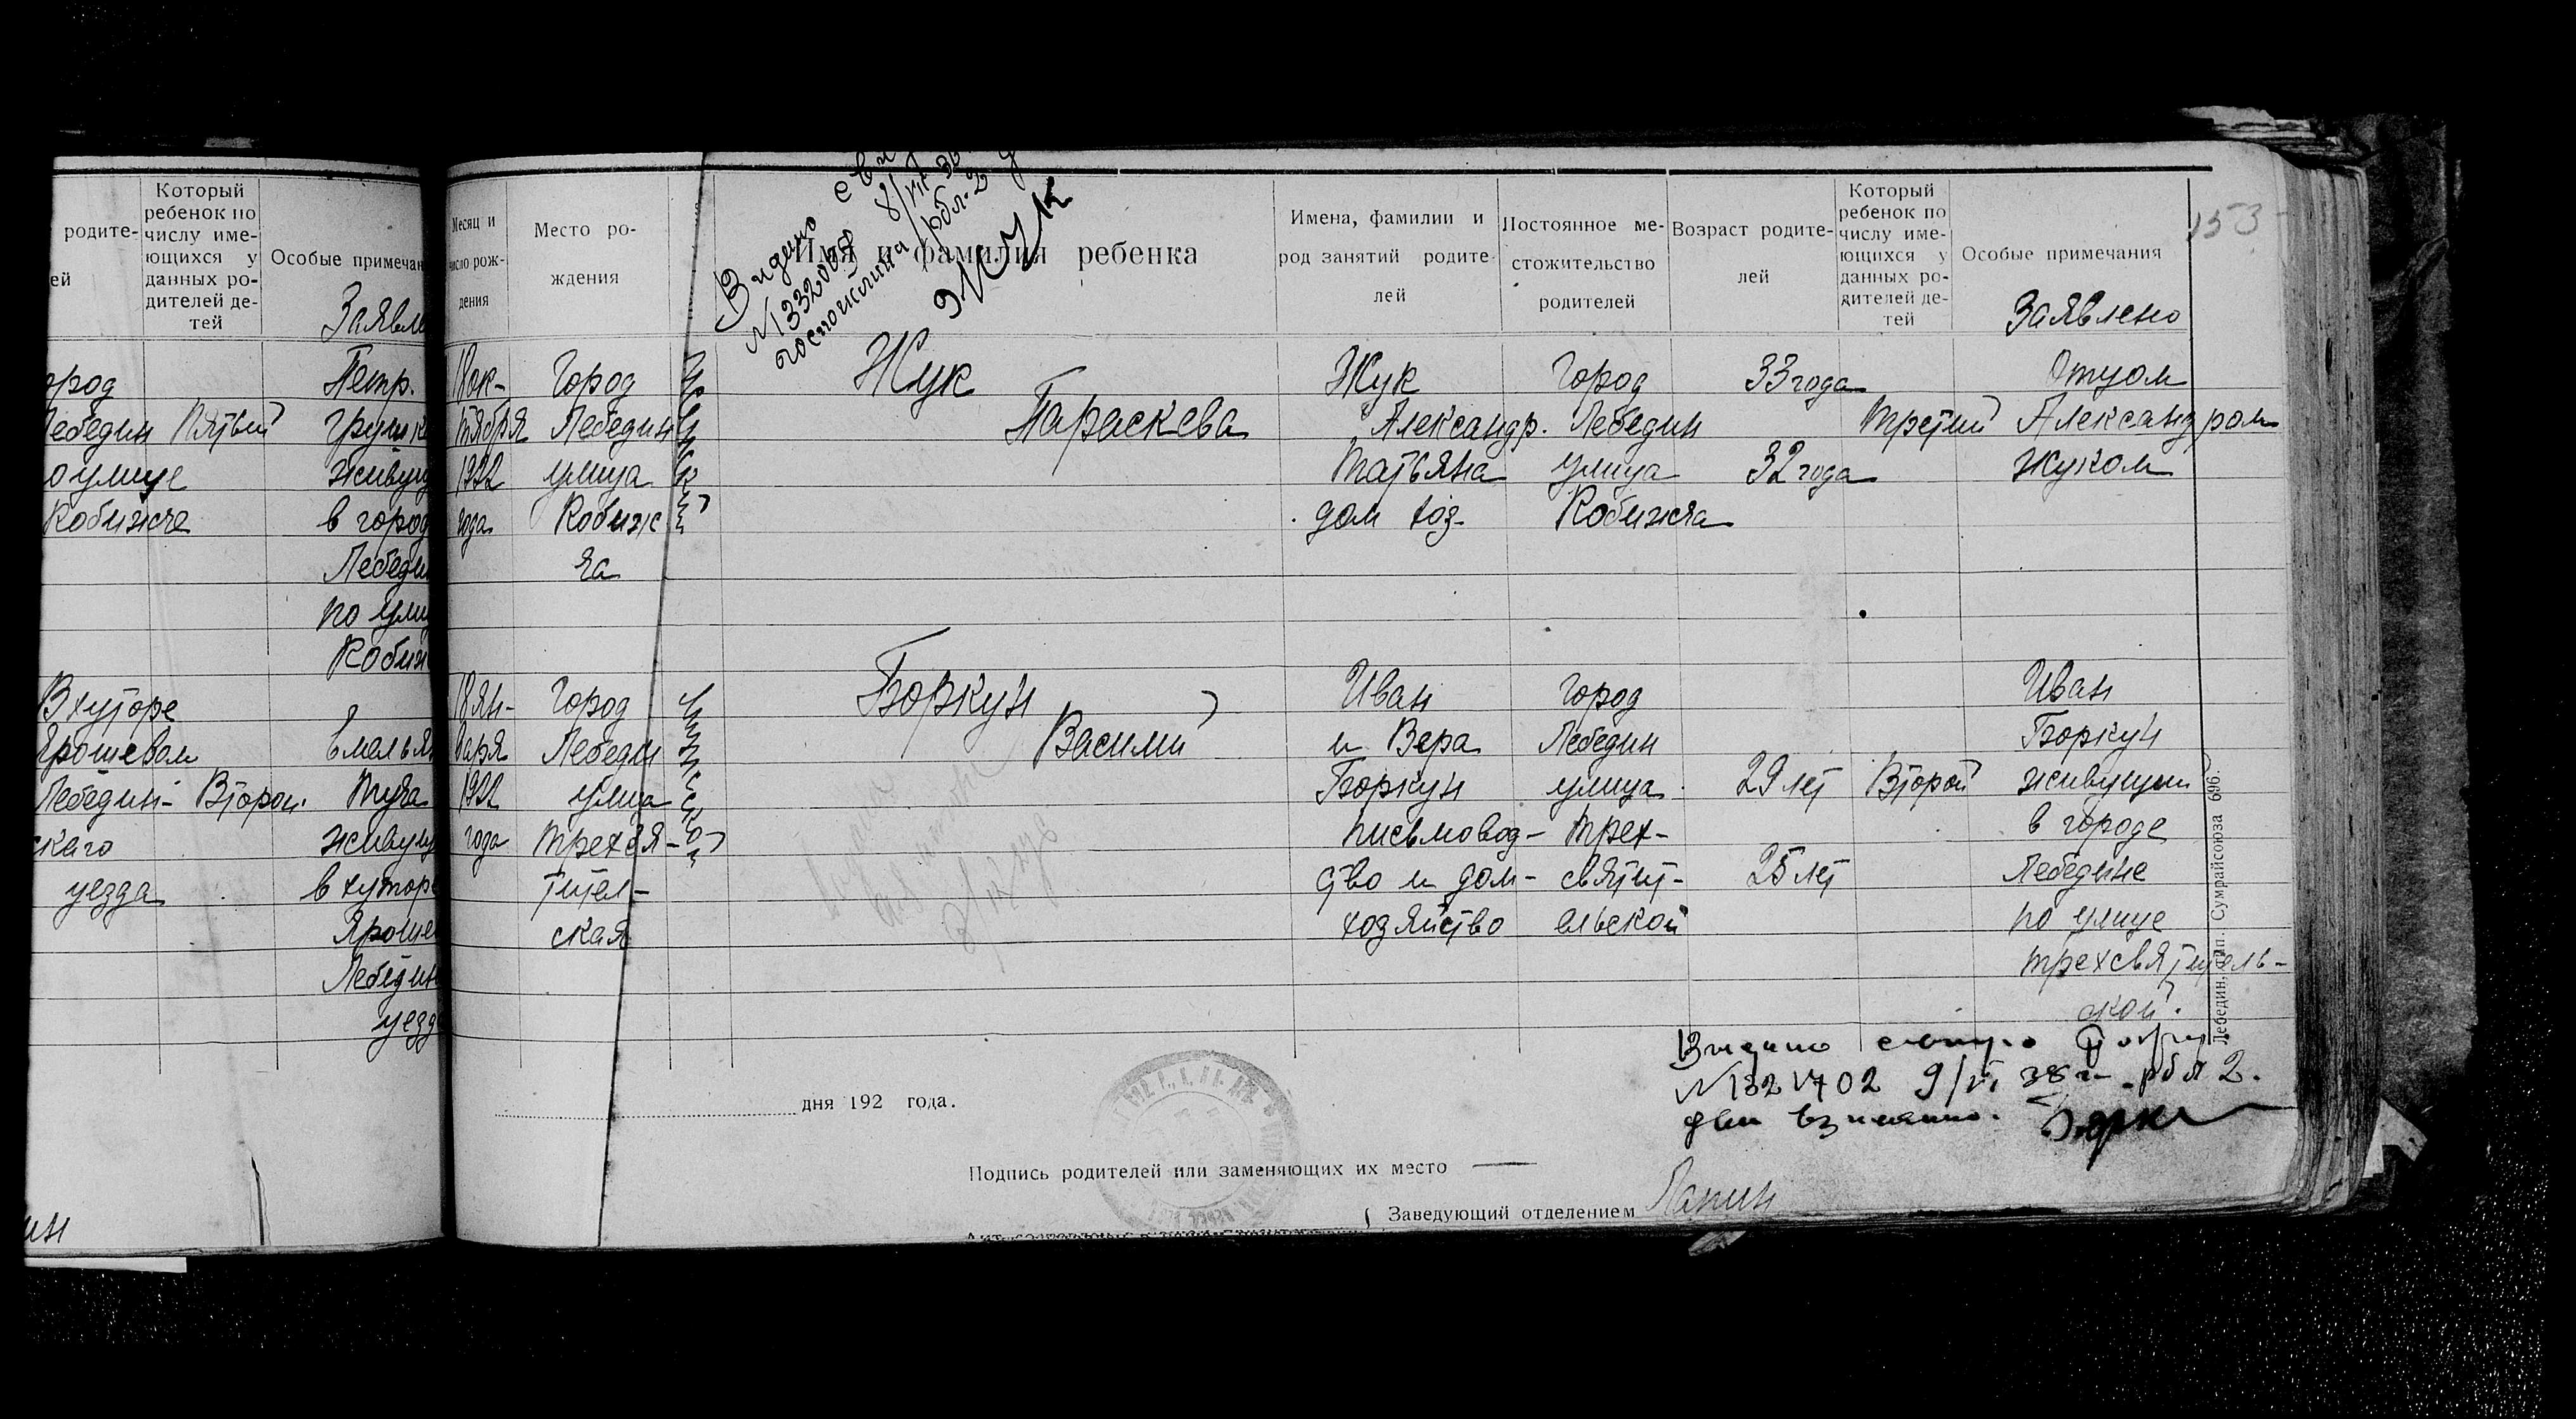 родите-
ей
Который
ребенок по
числу име-
ющихся у
данных ро-
дителей де-
тей
Особые примечан
Заявле
ород
Лебедин Пятый
о улице
Кобижче
Петр.
живущ
в город
Лебеди
по ули
Кобиж
В хуторе
Ярошевом
Лебедин- Второй.
ского
уезда
Туча
живущ
в хуторе
Яроше
Лебедин
уезд
ин
Месяц и
число рож-
дения
Место ро-
ждения
Видано
Жук
Имя и фамилия ребенка
Имена, фамилии и
род занятий родите-
лей
Постоянное ме-
стожительство
родителей
Возраст родите-
лей
Который
ребенок по
числу име-
ющихся у
данных ро-
дителей де-
тей
Особые примечания
Заявлено
153
18 ок-
тября
1922
года
Город
Лебедин
улица
Кобиж
ча
Жук
Параскева
Жук
Александр.
Татьяна
дом хоз.
Город
Лебедин
улица
Кобижча
33 года
32 года
Третий
Отцом
Александром
Жуком
18 Ян-
варя
1922
года
Город
Лебедин
улица
Трехсвя-
тител-
ская
Боркун
Василий
Иван
и Вера
Боркун
письмовод-
ство и дом-
хозяйство
город
Лебедин
улица
Трех-
святит-
ельской
29 лет
25 лет
Второй
Иван
Боркун
живущий
в городе
Лебедине
по улице
Трехсвятитель-
ской.
Лебедин, тип. Сумрайсоюза 696.
9/VI 38 г. рбл 2.
дня 192 года.
Подпись родителей или заменяющих их место —
Заведующий отделением Лапин